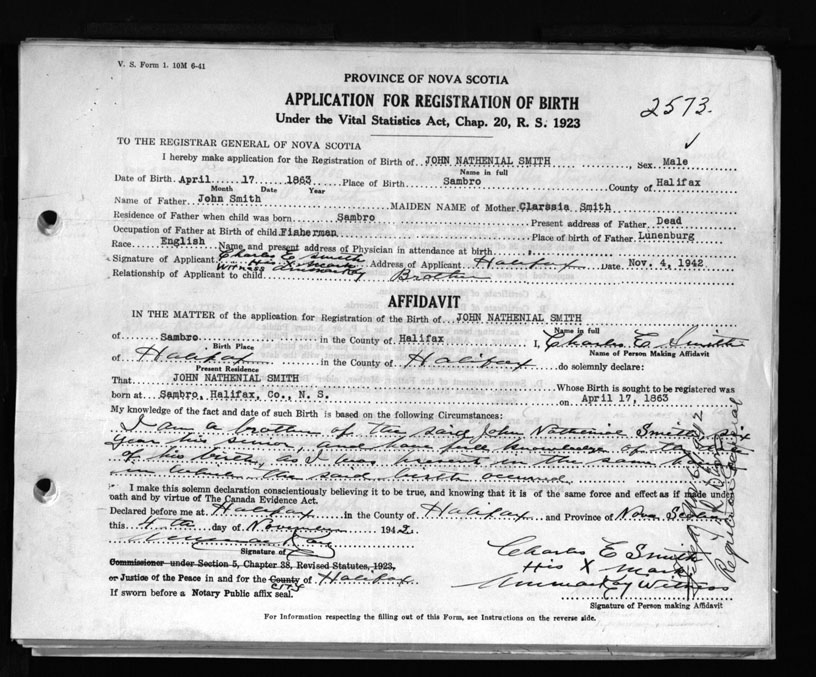 V. S. Form 1. 10M 6-41
PROVINCE OF NOVA SCOTIA
APPLICATION FOR REGISTRATION OF BIRTH
2573.
Under the Vital Statistics Act, Chap. 20, R. S. 1923
TO THE REGISTRAR GENERAL OF NOVA SCOTIA
I hereby make application for the Registration of Birth of JOHN NATHENIAL SMITH Sex Male
Name in full
Date of Birth April 17 1863 Place of Birth Sambro County of Halifax
Month Date Year
Name of Father John Smith MAIDEN NAME of Mother Clarssia Smith
Residence of Father when child was born Sambro Present address of Father Dead
Occupation of Father at Birth of child Fisherman Place of birth of Father Lunenburg
Race English Name and present address of Physician in attendance at birth
Signature of Applicant Charles E Smith Address of Applicant Halifax Date Nov. 4, 1942
His X Mark
Witness
Relationship of Applicant to child Brother
AFFIDAVIT
IN THE MATTER of the application for Registration of the Birth of JOHN NATHENIAL SMITH
Name in full
of Sambro in the County of Halifax I, Charles E Smith
Birth Place Name of Person Making Affidavit
of Halifax in the County of Halifax do solemnly declare:
Present Residence
That JOHN NATHENIAL SMITH Whose Birth is sought to be registered was
born at Sambro, Halifax, Co., N. S. on April 17, 1863
My knowledge of the fact and date of such Birth is based on the following Circumstances:
I am a brother of the said John Nathenial Smith, six
year his senior, and have full knowledge of the
of his birth, as I was present in the same
in which the said birth occured.
I make this solemn declaration conscientiously believing it to be true, and knowing that it is of the same force and effect as if made under
oath and by virtue of The Canada Evidence Act.
Declared before me at Halifax in the County of Halifax and Province of Nova Scotia
this 4th day of November 1942
Signature of
Charles E Smith
His X Mark
Witness
Commissioner under Section 5, Chapter 38, Revised Statutes, 1923,
or Justice of the Peace in and for the County of Halifax
CITY
If sworn before a Notary Public affix seal.
Signature of Person making Affidavit
For Information respecting the filling out of this Form, see Instructions on the reverse side.
Registrar General